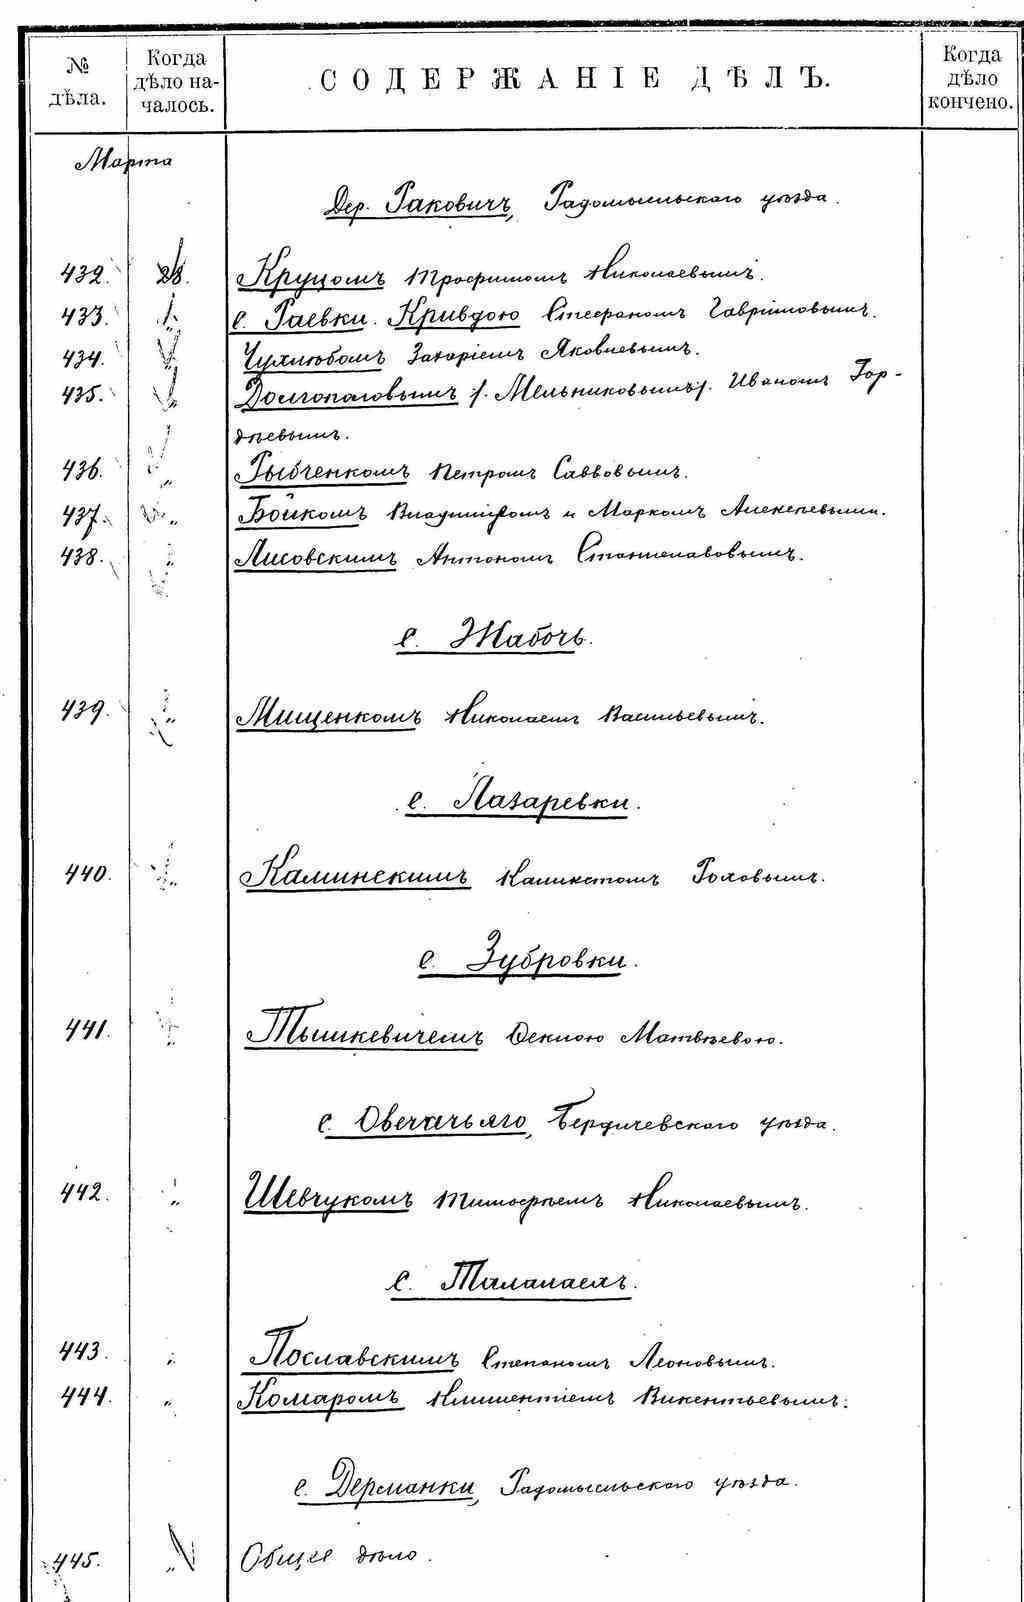 № дѣла.
Когда дѣло на-чалось.
СОДЕРЖАНІЕ ДѢЛЪ.
Когда дѣло кончено.
Марта
Дер. Раковичъ, Радомысльскаго уѣзда.
432. 28. Круцомъ Трофимомъ Николаевымъ.
433. „ с. Раевки. Кривдою Стефаномъ Гавріиловымъ.
434. „ Чухлюбомъ Захаріемъ Яковлевымъ.
435. „ Долгополовымъ /. Мельниковымъ/. Иваномъ Гор-
дѣевымъ.
436. „ Рыбченкомъ Петромъ Саввовымъ.
437. „ Бойкомъ Владиміромъ и Маркомъ Алексѣевыми.
438. „ Лисовскимъ Антономъ Станиславовымъ.
с. Жабочь.
439. „ Мищенкомъ Николаемъ Васильевымъ.
с. Лазаревки.
440. „ Каминскимъ Каликстомъ Роховымъ.
с. Зубровки.
441. „ Тышкевичемъ Феклою Матвѣевою.
с. Овечачьяго, Бердичевскаго уѣзда.
442. „ Шевчукомъ Тимофѣемъ Николаевымъ.
с. Талалаехъ.
443. „ Пославскимъ Степаномъ Леоновымъ.
444. „ Комаромъ Климентіемъ Викентьевымъ.
с. Дерманки, Радомысльскаго уѣзда.
445. „ Общее дѣло.